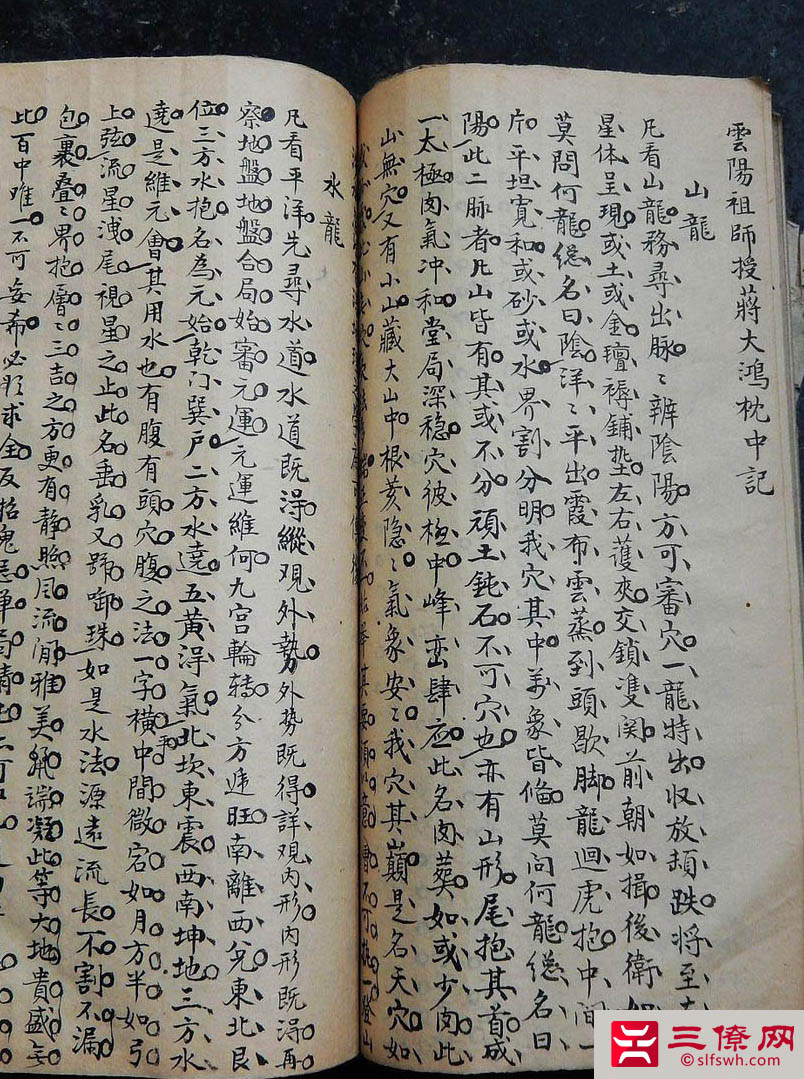 雲陽祖師授蔣大鴻枕中記
山龍
凡看山龍務尋出脉〻辨陰陽方可審穴一龍特出収放頓跌将至
星体呈現或土或金壇褥鋪墊左右護夾交鎖雙関前朝如揖後衛如
莫問何龍緫名曰陰洋〻平出霞布雲蒸到頭歇脚龍迴虎抱中間一
片平坦寛和或砂或水界割分明我穴其中万象皆俻莫問何龍緫名曰
陽此二脉者凡山皆有其或不分頑土鈍石不可穴也亦有山形尾抱其首成
一太極肉氣冲和堂局深穏穴彼極中峰峦肆应此名肉葬如或少肉此
山無穴又有小山藏大山中根荄隐〻氣象安〻我穴其巔是名天穴如
水龍
凡看平洋先尋水道水道既淂縱观外勢外势既得詳观内形内形既淂再
察地盤地盤合局始審元運元運維何九宮輪转分方進旺南離西兌東北艮
位三方水抱名為元始乾门巽戶二方水遶五黃淂氣北坎東震西南坤地三方水
遶是維元會其用水也有腹有頭穴腹之法一字横中間微窝如月方半如引
上弦流星洩尾視星之止此名垂乳又號啣珠如是水法源遠流長不割不漏
包裹叠〻界抱層〻三吉之方更有静照風流澑雅美麗端凝此等大地貴盛
此百中难一不可妄希必欲求全反招鬼
三僚网
slfswh.com